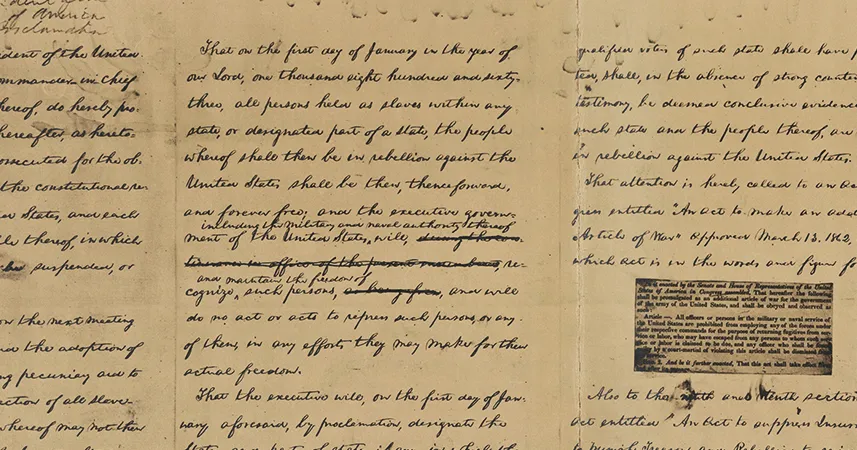 of America
Proclamation
dent of the United
ommander-in-Chief
hereof, do hereby pro-
hereafter, as hereto-
osecuted for the ob-
the constitutional re-
ed States, and each
thereof, in which
suspended, or
on the next meeting
nd the adoption of
ng pecuniary aid to
ction of all slave-
whereof may not then
That on the first day of January in the year of
our Lord, one thousand eight hundred and sixty-
three, all persons held as slaves within any
state, or designated part of a state, the people
whereof shall then be in rebellion against the
United States shall be then, thenceforward,
and forever free; and the executive govern-
including the military and naval authority thereof
ment of the United States, will, during the con-
tinuance in office of the present incumbents, re-
and maintain the freedom of
cognize, such persons, as being free, and will
do no act or acts to repress such persons, or any
of them, in any efforts they may make for their
actual freedom.
That the executive will, on the first day of Jan-
uary aforesaid, by proclamation, designate the
qualified voters of such state shall have
ted, shall, in the absence of strong counter
testimony, be deemed conclusive evidence
such state and the people thereof, are
in rebellion against the United States.
That attention is hereby called to an Act
gress entitled "An Act to make an addi
Article of War" approved March 13, 1862,
which act is in the words and figure fo
enacted by the Senate and House of Representatives of the United
States of America in Congress assembled, That hereafter the following
shall be promulgated as an additional article of war for the government
of the army of the United States, and shall be obeyed and observed as
such:
Article —. All officers or persons in the military or naval service of
the United States are prohibited from employing any of the forces under
their respective commands for the purpose of returning fugitives from ser-
vice or labor, who may have escaped from any persons to whom such
or labor is claimed to be due, and any officer who shall be found
by a court-martial of violating this article shall be dismissed from
And be it further enacted, That this act shall take effect
Also to the ninth and tenth section
act entitled "An Act to suppress Insur